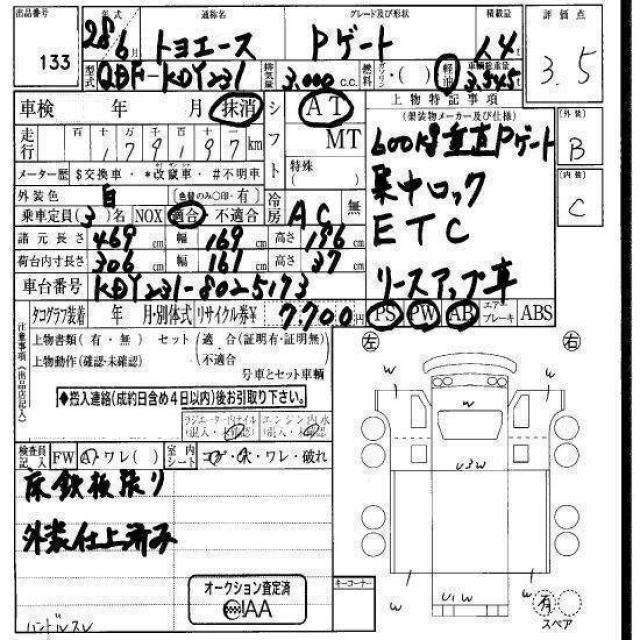 出品番号
133
年式
28年6月
通称名
トヨエース
グレード及び形状
Pゲート
積載量
1.4t
評価点
3.5
型式
QDF-KDY231
排気量
3,000 c.c.
燃料
ガソリン・( )
軽油
車輌総重量
3.545t
車検 年 月 抹消
走行
百 十 万 千 百 十
179197 km
メーター歴 $交換車・*改竄車・#不明車
シフト
AT
MT
特殊
( )
外装色 白 (色替のみ○印・有)
乗車定員(3)名 NOX 適合 不適合
冷房 AC 無
諸元長さ 469 cm 幅 169 cm 高さ 196 cm
荷台内寸長さ 306 cm 幅 161 cm 高さ 37 cm
車台番号 KDY231-8025173
上物特記事項
(架装物メーカー及び仕様)
600kg垂直Pゲート
集中ロック
ETC
リースアップ車
[外装]
B
[内装]
C
タコグラフ装着 年 月・別体式 リサイクル券¥ 7,700円
PS PW AB エアーブレーキ ABS
注意事項(出品店記入)
上物書類(有・無) セット(適 合(証明有・証明無)
・不適合
上物動作(確認・未確認) 号車とセット車輌
◆搬入連絡(成約日含め4日以内)後お引取り下さい。
検査員記入
FW
A・ワレ( )
室内シート
コゲ・穴・ワレ・破れ
床鉄板張り
外装仕上済み
オークション査定済
JAAA
キーコーナー
左
右
W
W
W
W
U3W
W
W
U1W
W
有
スペア